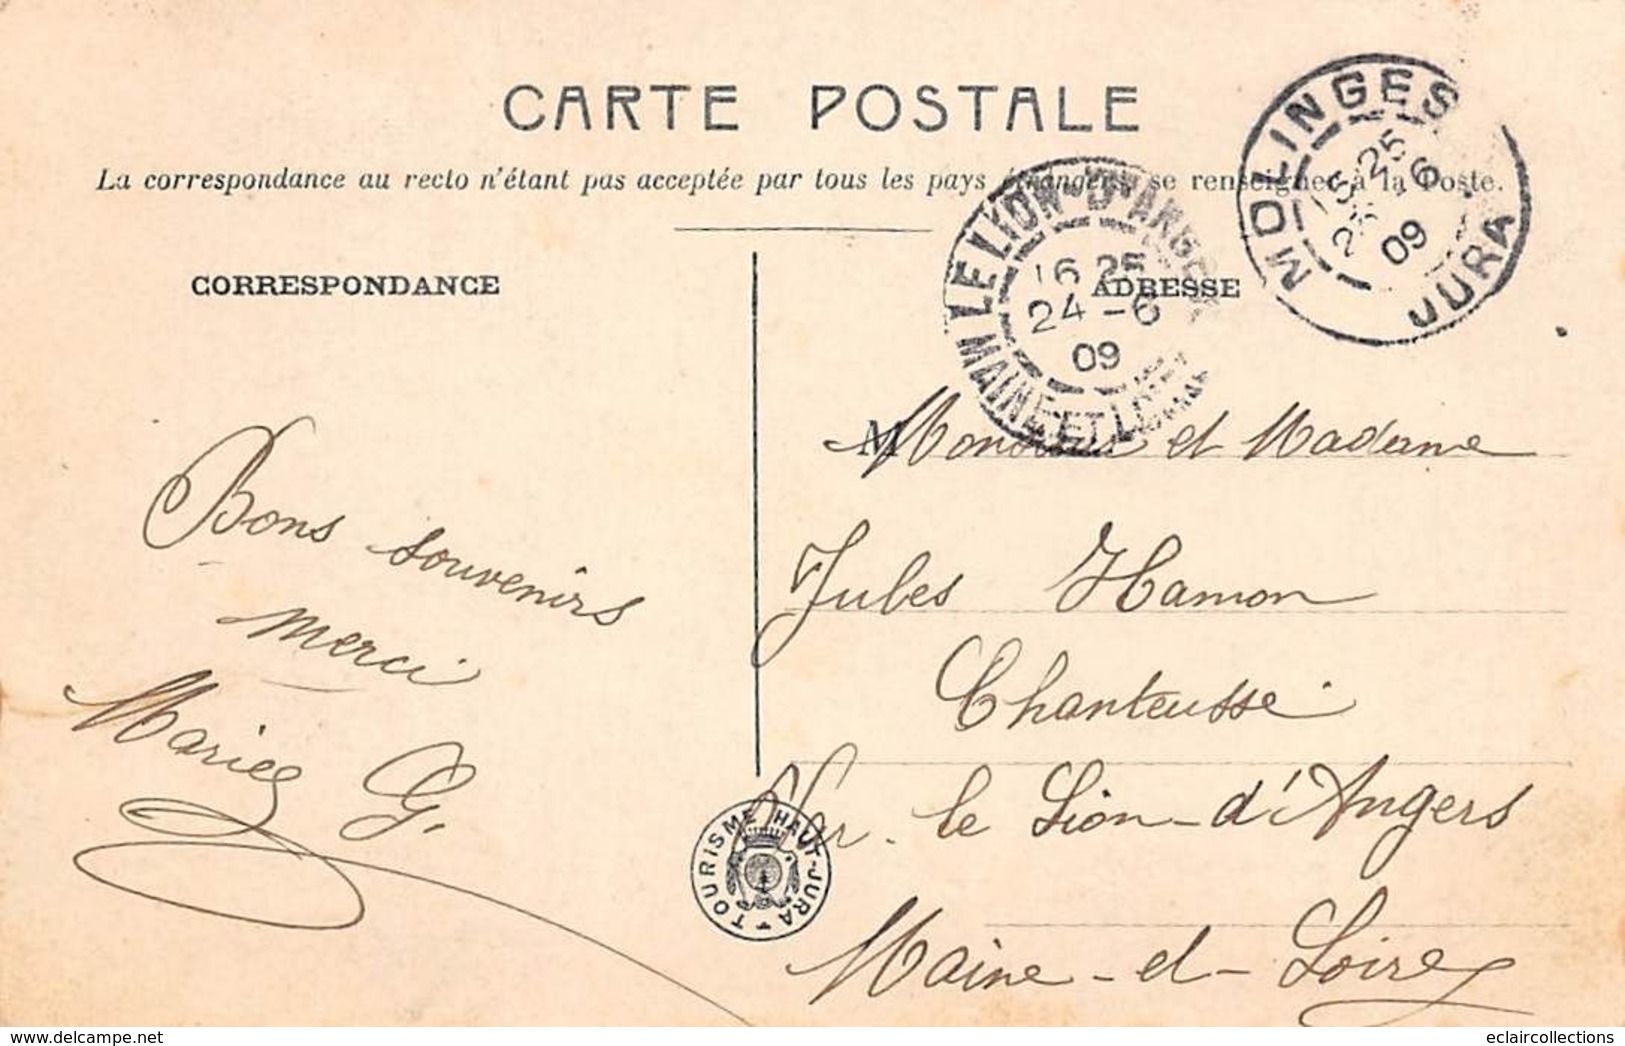 CARTE POSTALE
La correspondance au recto n'étant pas acceptée par tous les pays étrangers, se renseigner à la Poste.
MOLINGES
15 25
6
09
JURA
LE LION-D'ANGERS
16 25
24-6
09
MAINE ET LOIRE
CORRESPONDANCE
ADRESSE
M Monsieur et Madame
Jules Hamon
Chanteussé
Par le Lion-d'Angers
Maine-et-Loire
Bons souvenirs
merci
Marie G.
TOURISME HAUT-JURA
eclaircollections